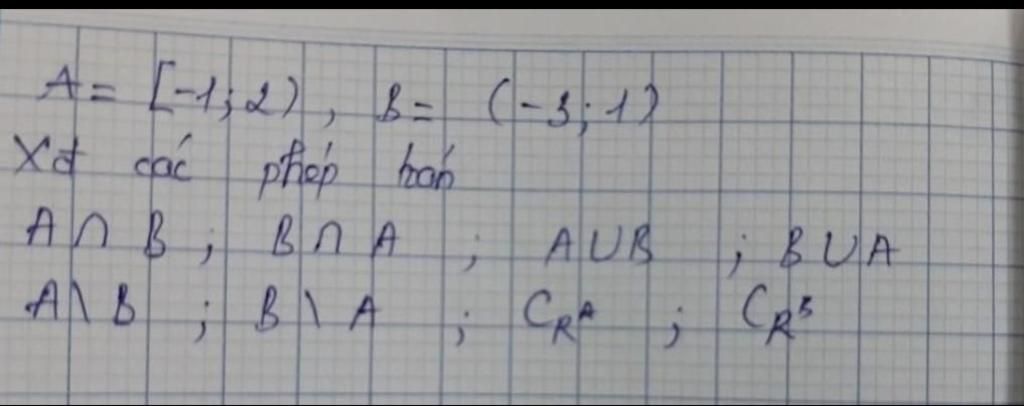 A = [-1; 2), B = (-3; 1)
Xđ các phép toán
A ∩ B ; B ∩ A ; A ∪ B ; B ∪ A
A \ B ; B \ A ; C_R^A ; C_R^B